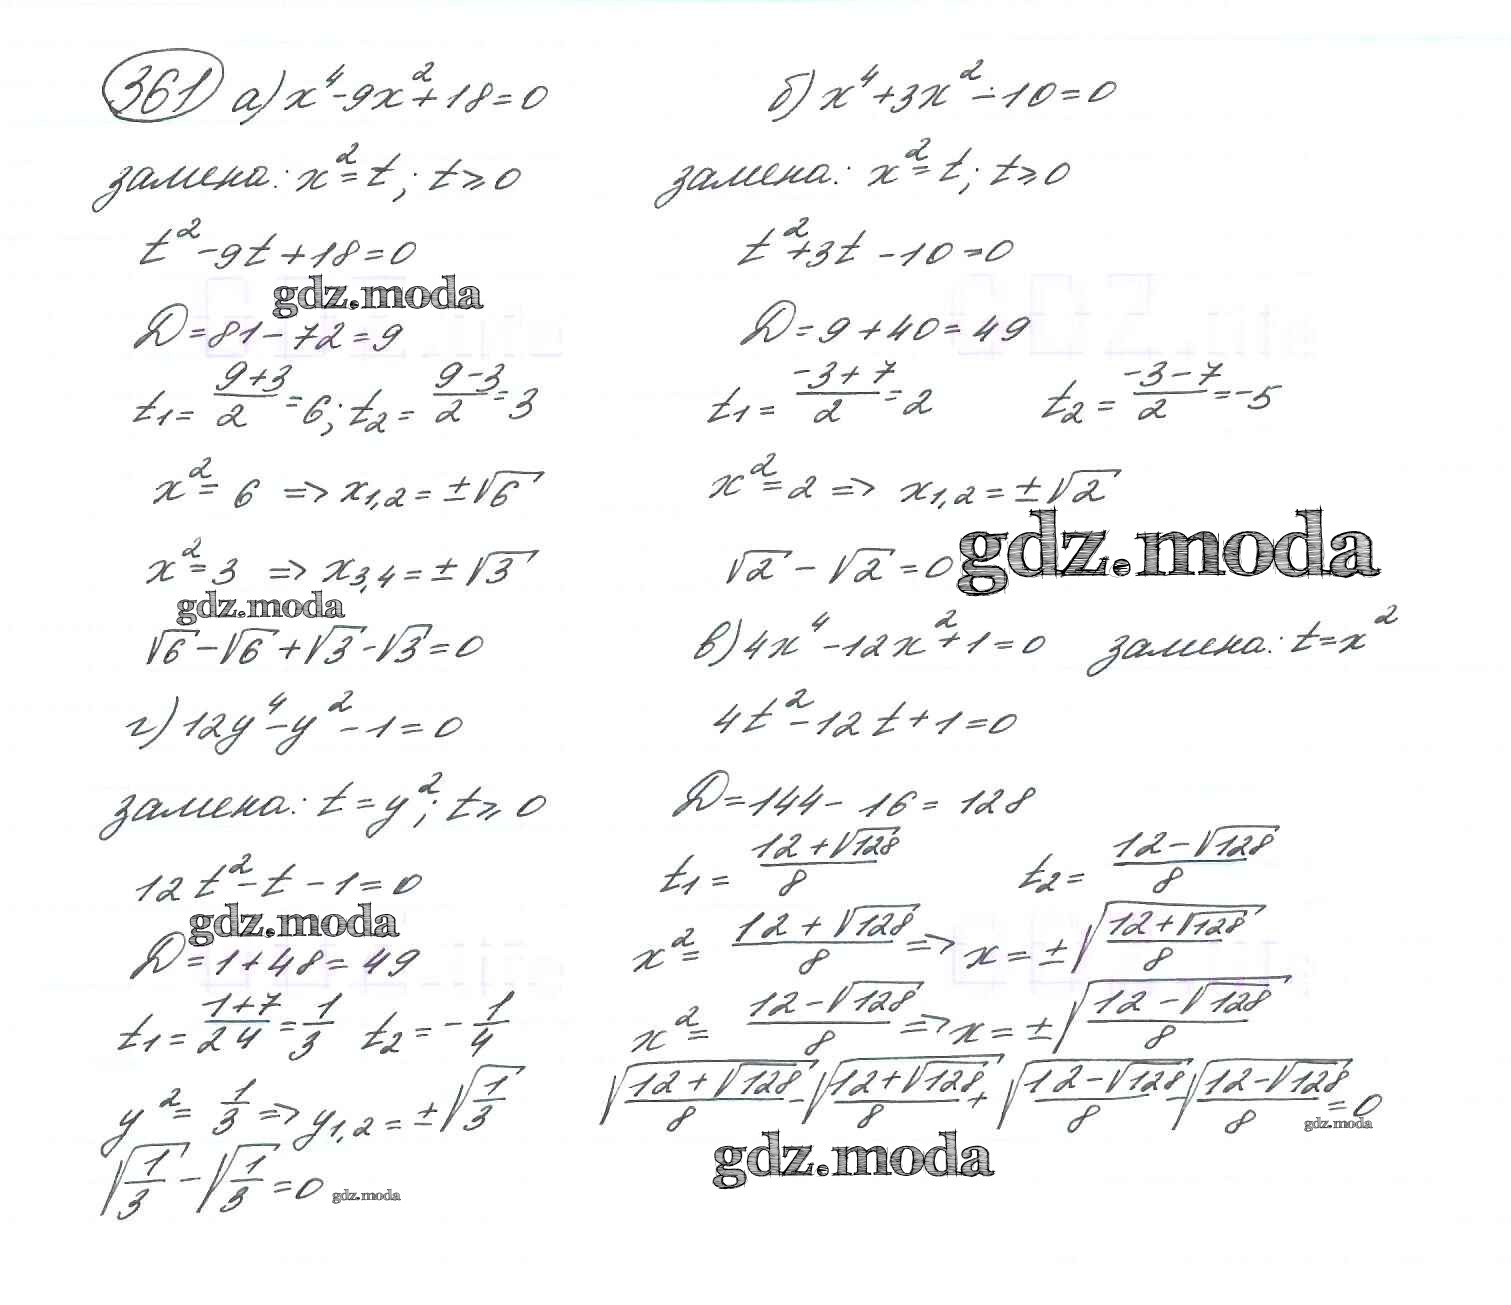 361 а) x⁴-9x²+18=0
замена: x²=t; t≥0
t²-9t+18=0
gdz.moda
Д=81-72=9
t₁= (9+3)/2 =6; t₂= (9-3)/2 =3
x²=6 => x₁,₂=±√6
x²=3 => x₃,₄=±√3
gdz.moda
√6-√6+√3-√3=0
г) 12y⁴-y²-1=0
замена: t=y²; t≥0
12t²-t-1=0
gdz.moda
Д=1+48=49
t₁= (1+7)/24 = 1/3 t₂= -1/4
y²= 1/3 => y₁,₂=±√(1/3)
√(1/3) - √(1/3) =0
gdz.moda
б) x⁴+3x²-10=0
замена: x²=t; t≥0
t²+3t-10=0
Д=9+40=49
t₁= (-3+7)/2 =2 t₂= (-3-7)/2 =-5
x²=2 => x₁,₂=±√2
√2-√2=0
gdz.moda
в) 4x⁴-12x²+1=0 замена: t=x²
4t²-12t+1=0
Д=144-16=128
t₁= (12+√128)/8 t₂= (12-√128)/8
x²= (12+√128)/8 => x=±√((12+√128)/8)
x²= (12-√128)/8 => x=±√((12-√128)/8)
√((12+√128)/8) - √((12+√128)/8) + √((12-√128)/8) - √((12-√128)/8) =0
gdz.moda
gdz.moda